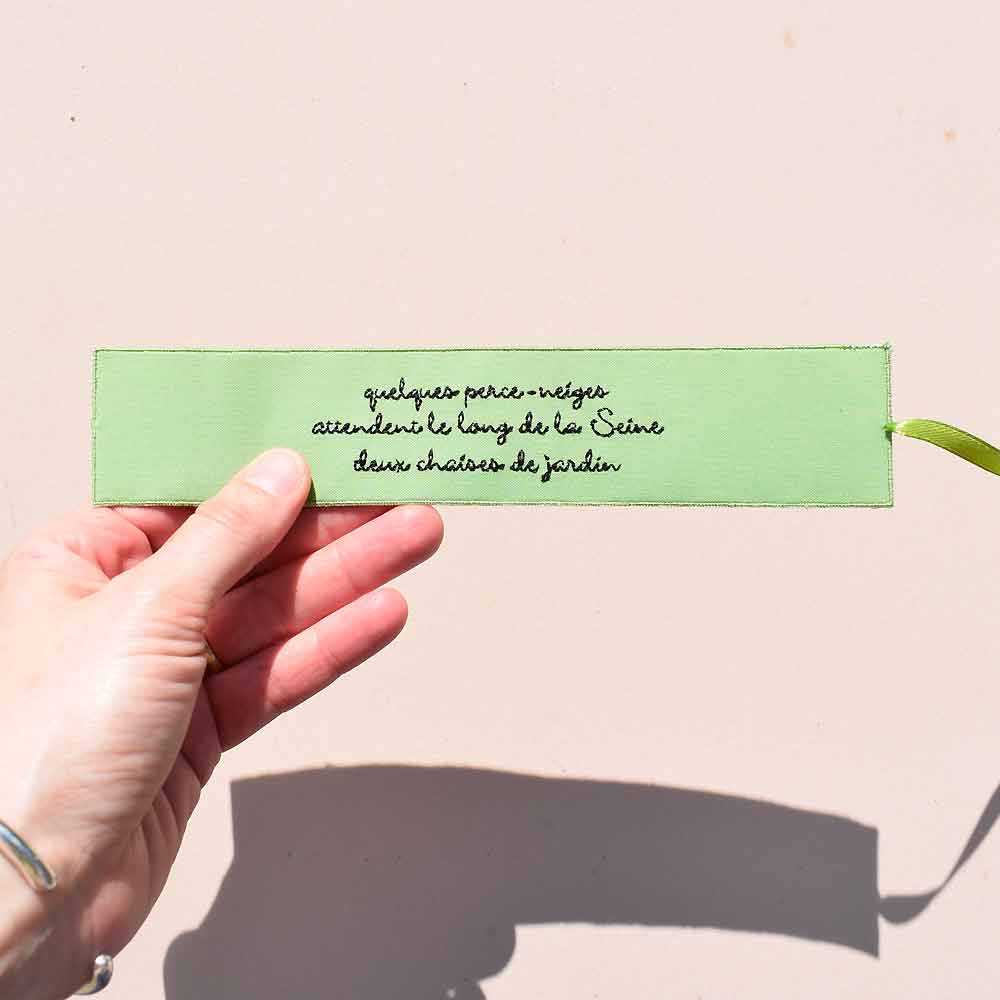 quelques perce-neiges
attendent le long de la Seine
deux chaises de jardin